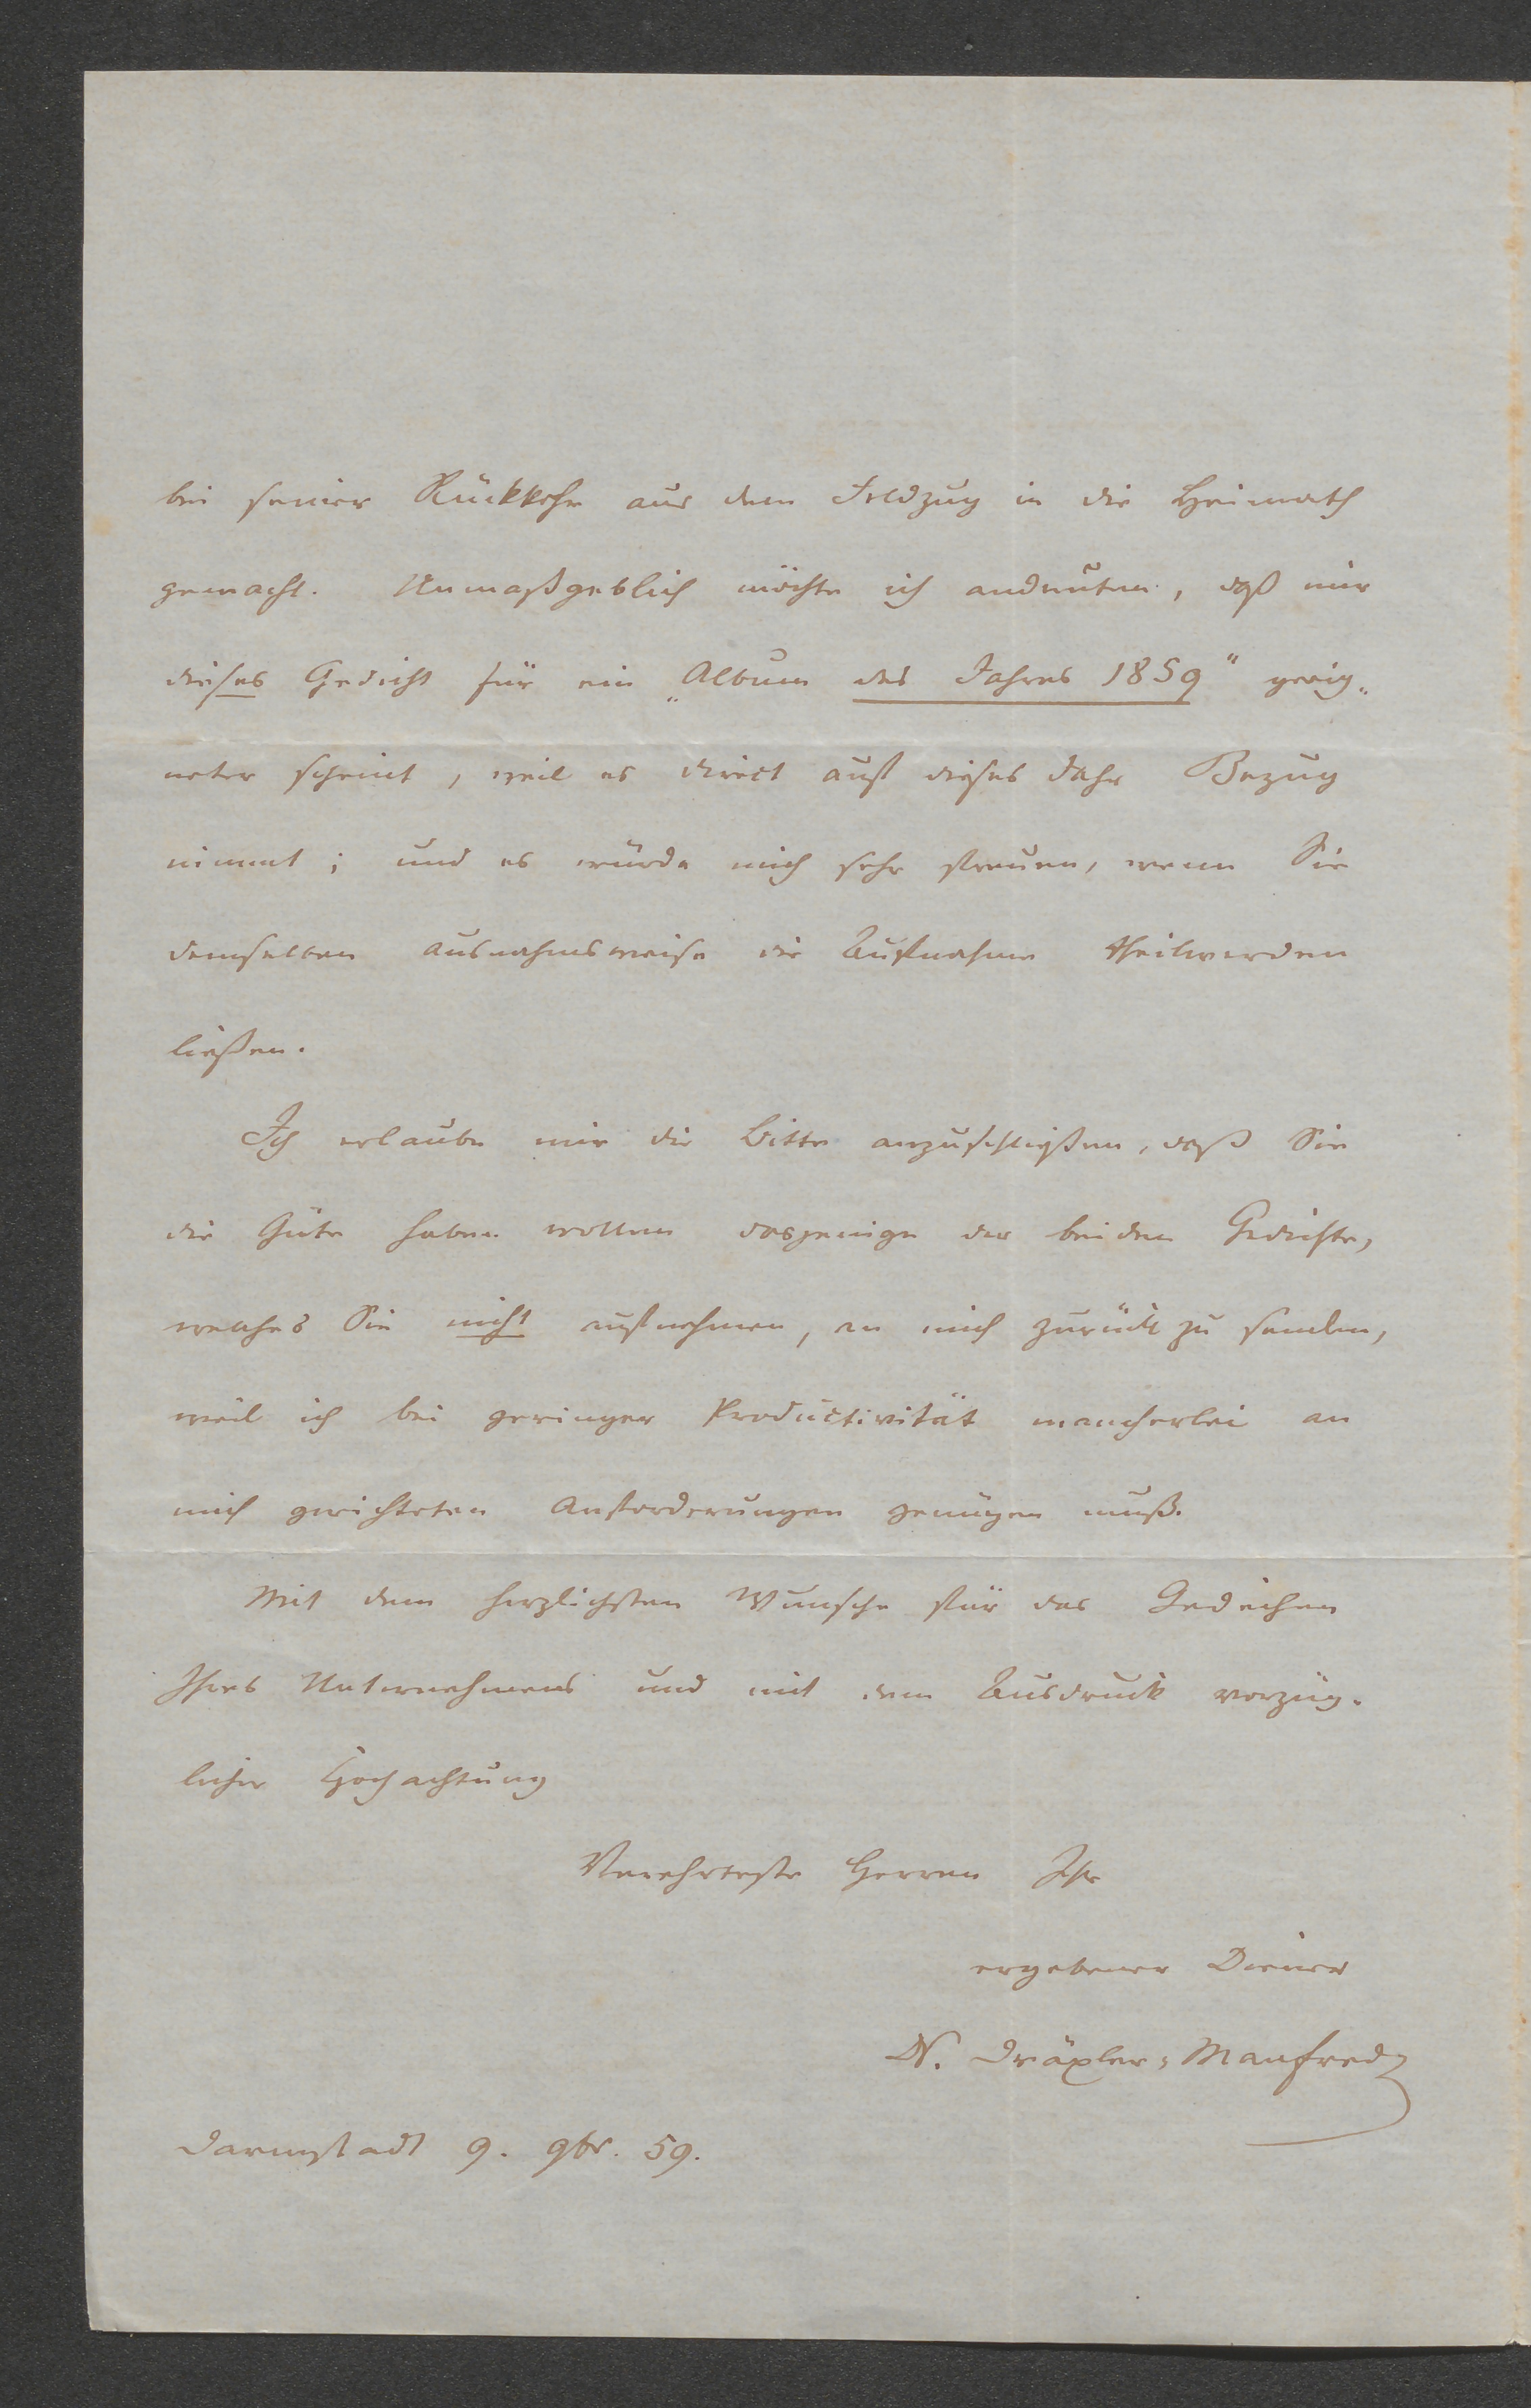 bei seiner Rückkehr aus dem Feldzug in die Heimath
gemacht. Unmaßgeblich möchte ich andeuten, daß mir
dieses Gedicht für ein „Album des Jahres 1859" geeig-
neter scheint, weil es direct auf dieses Jahr Bezug
nimmt; und es würde mich sehr freuen, wenn Sie
demselben ausnahmsweise die Aufnahme theilwerden
ließen.
Ich erlaube mir die Bitte anzuschließen, daß Sie
die Güte haben wollen dasjenige der beiden Gedichte,
welches Sie nicht aufnehmen, an mich zurück zu senden,
weil ich bei geringer Productivität mancherlei an
mich gerichteten Anforderungen genügen muß.
Mit dem herzlichsten Wunsche für das Gedeihen
Ihres Unternehmens und mit dem Ausdruck vorzüg-
licher Hochachtung
Verehrteste Herren Ihr
ergebener Diener
Dr. Dräxler-Manfred
Darmstadt 9. 9br. 59.